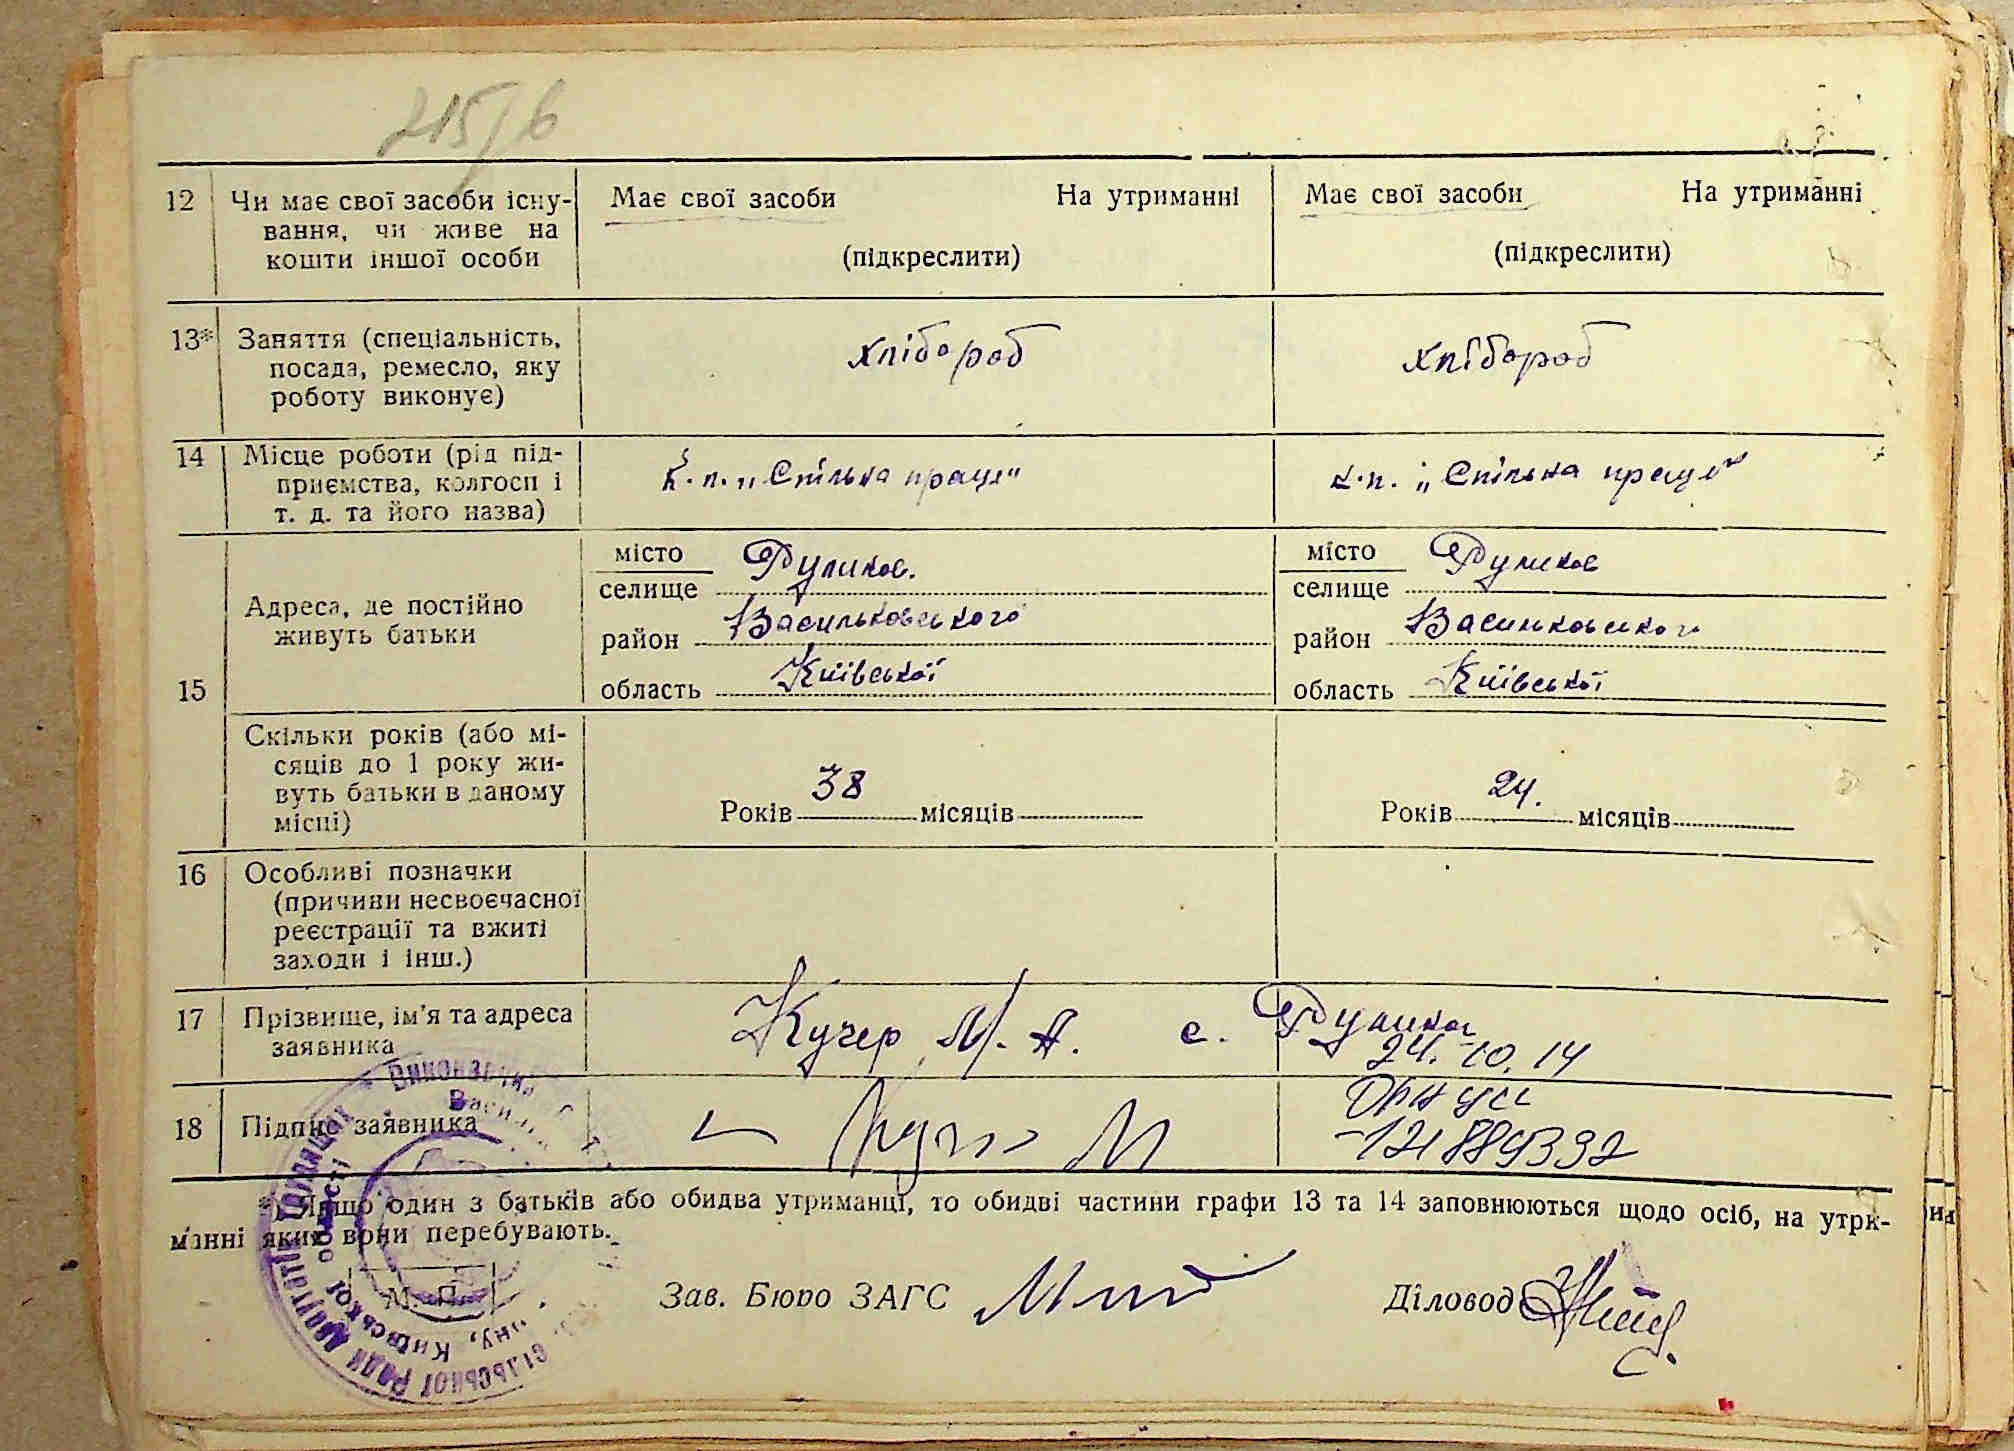 215/6
12 Чи має свої засоби існу- Має свої засоби На утриманні Має свої засоби На утриманні
вання, чи живе на
кошти іншої особи (підкреслити) (підкреслити)
13* Заняття (спеціальність, хлібороб хлібороб
посада, ремесло, яку
роботу виконує)
14 Місце роботи (рід під- к.п. „Спільна праця" к.п. „Спільна праця"
приємства, колгосп і
т. д. та його назва)
15 Адреса, де постійно
живуть батьки
місто Руликов. місто Руликов
селище селище
район Васильковського район Васильковського
область Київської область Київської
Скільки років (або мі-
сяців до 1 року жи-
вуть батьки в даному
місці)
Років 38 місяців Років 24. місяців
16 Особливі позначки
(причини несвоєчасної
реєстрації та вжиті
заходи і інш.)
17 Прізвище, ім'я та адреса Кучер М. А. с. Руликов
заявника
24.10.14
18 Підпис заявника
*) Якщо один з батьків або обидва утриманці, то обидві частини графи 13 та 14 заповнюються щодо осіб, на утри-
манні яких вони перебувають.
М. П. Зав. Бюро ЗАГС Діловод
сільської Ради Депутатів Трудящих
Київської області